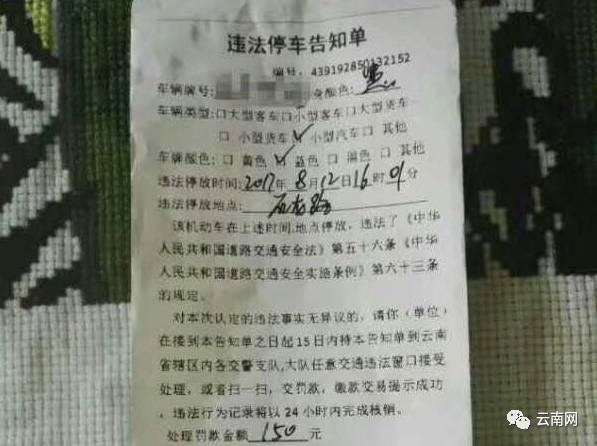 违法停车告知单
编号: 439192850132152
车辆编号: 身颜色: 黑
车辆类型:口大型客车口小型客车口大型货车
口 小型货车 小型汽车口 其他
车牌颜色: 口 黄色 蓝色 口 黑色 口 其他
违法停放时间: 2017年 8月12日16时01分
违法停放地点:
该机动车在上述时间.地点停放, 违法了《中华
人民共和国道路交通安全法》第五十六条《中华
人民共和国道路交通安全实施条例》第六十三条
的规定。
对本次认定的违法事实无异议的, 请你(单位)
在接到本告知单之日起15日内持本告知单到云南
省辖区内各交警支队,大队任意交通违法窗口接受
处理, 或者扫一扫, 交罚款, 缴款交易提示成功
, 违法行为记录将以24小时内完成核销。
处理罚款金额 150 元
云南网